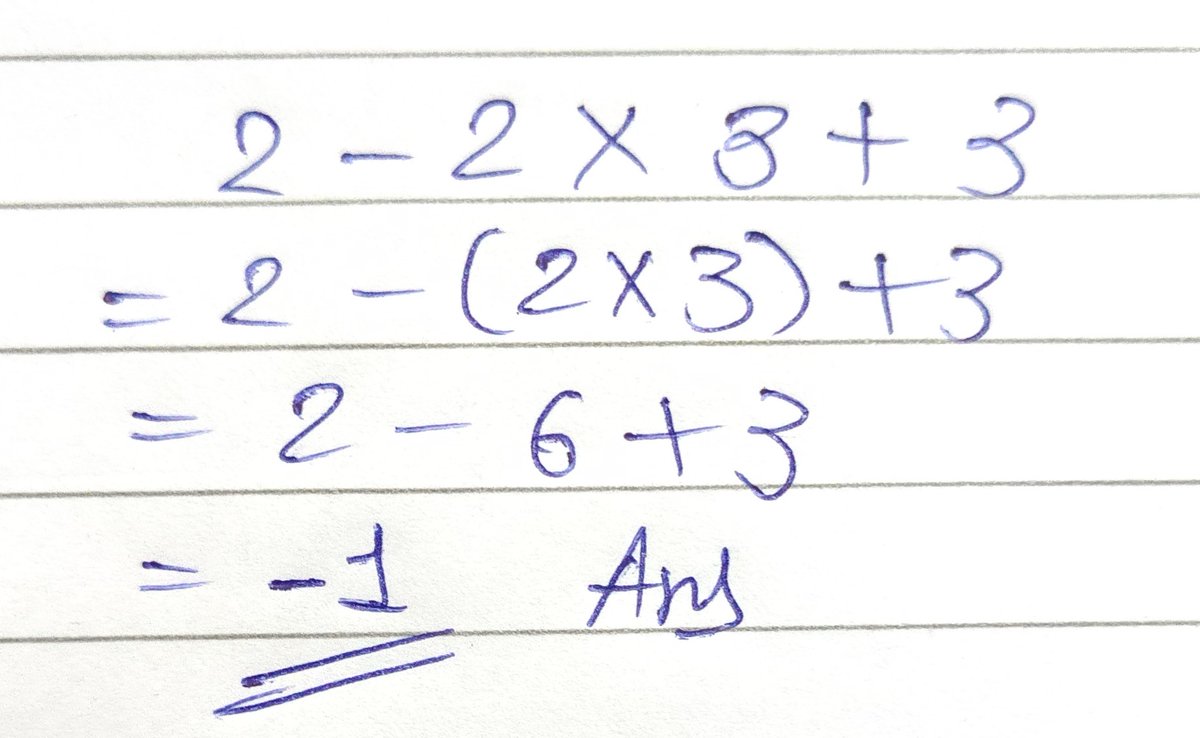 2 - 2 × 3 + 3
= 2 - (2×3) + 3
= 2 - 6 + 3
= -1 Ans